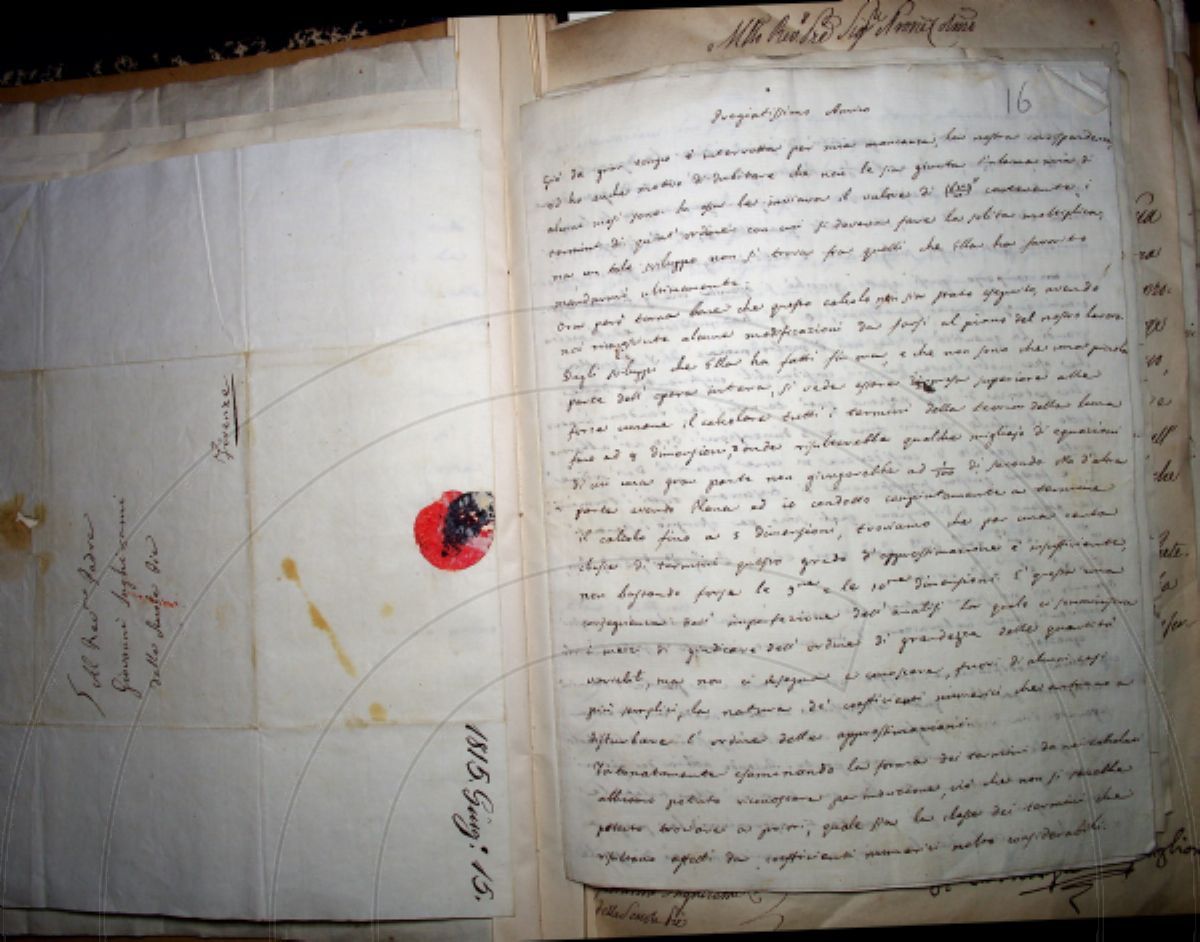 Firenze
Al Rev.mo Padre
Giovanni Inghirami
delle Scuole Pie
1815 Giug.º 15.
16
Pregiatissimo Amico
Già da gran tempo è interrotta per mia mancanza, la nostra corrispondenza
ed ho anche motivo di dubitare che non le sia giunta
alcuni mesi sono le inviava il valore di contenente i
termini di quart' ordine con cui si doveva fare la solita moltiplica,
ma un tale sviluppo non si trova fra quelli che Ella ha favorito
mandarmi ultimamente.
Ora però torna bene che questo calcolo non sia stato eseguito, avendo
noi alcune modificazioni da farsi al piano del nostro lavoro.
Dagli sviluppi che Ella ha fatti fin ora, e che non sono che una piccola
parte dell' opera intera, si vede essere impresa superiore alle
forze umane il calcolare tutti i termini della teoria della luna
fino ad dimensioni, d'onde risulterebbe qualche migliajo di equazioni
di cui una gran parte non giungerebbe ad 1/100 di secondo. Ma d'altra
parte avendo Plana ed io condotto congiuntamente a termine
il calcolo fino a 5 dimensioni, troviamo che per una certa
classe di termini questo grado d'approssimazione è insufficiente,
non bastando forse le 9.ne e le 10.me dimensioni. È questa una
conseguenza dell' imperfezione dell' analisi la quale ci somministra
i mezzi di giudicare dell' ordine di grandezza delle quantità
variabili, ma non ci insegna a conoscere, fuori di alcuni casi
più semplici, la natura de' coefficienti numerici che entrano a
disturbare l' ordine delle approssimazioni.
Fortunatamente esaminando la forma dei termini da noi calcolati
abbiamo potuto riconoscere per induzione, ciò che non si sarebbe
potuto trovare a priori, quale sia la classe dei termini che
risultano affetti da coefficienti numerici molto considerabili.
delle Scuole Pie